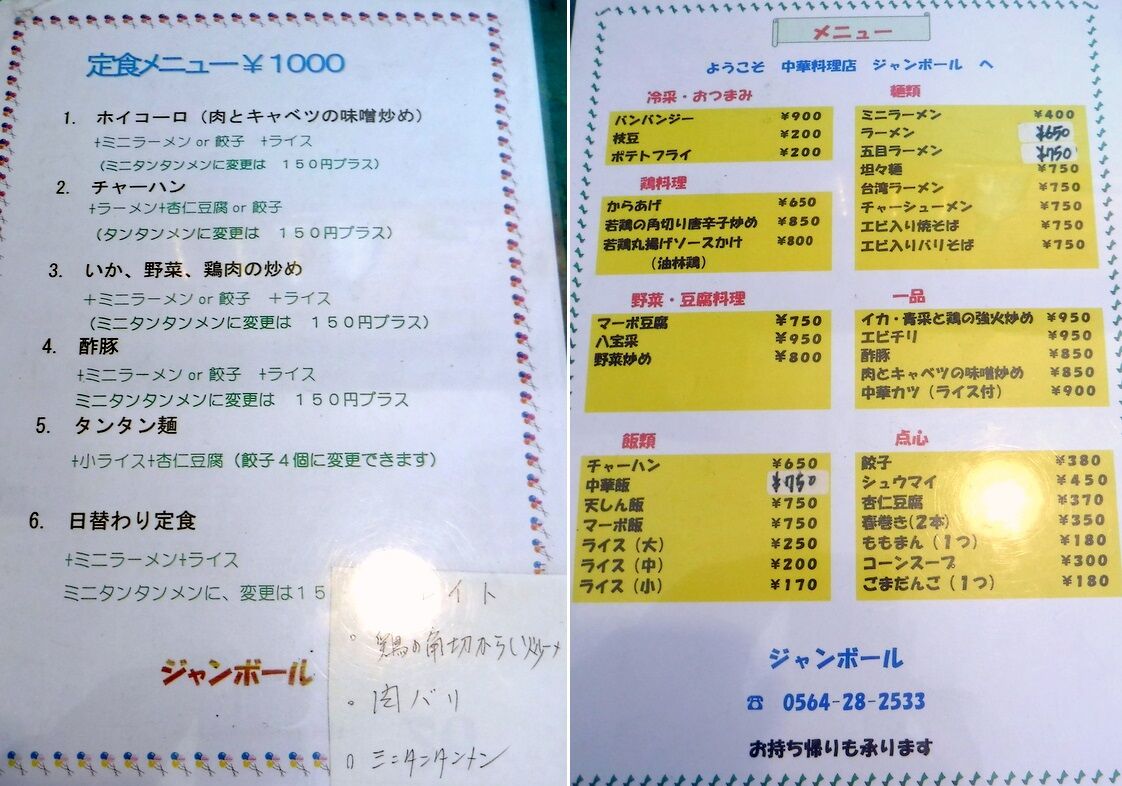 定食メニュー￥1000
1. ホイコーロ（肉とキャベツの味噌炒め）
+ミニラーメン or 餃子 +ライス
（ミニタンタンメンに変更は １５０円プラス）
2. チャーハン
+ラーメン+杏仁豆腐 or 餃子
（タンタンメンに変更は １５０円プラス）
3. いか、野菜、鶏肉の炒め
+ミニラーメン or 餃子 +ライス
（ミニタンタンメンに変更は １５０円プラス）
4. 酢豚
+ミニラーメン or 餃子 +ライス
ミニタンタンメンに変更は １５０円プラス
5. タンタン麺
+小ライス+杏仁豆腐（餃子４個に変更できます）
6. 日替わり定食
+ミニラーメン+ライス
ミニタンタンメンに、変更は１５
イト
。鶏の角切からし炒メ
。肉バリ
ミニタンタンメン
ジャンボール
メニュー
ようこそ 中華料理店 ジャンボール へ
冷采・おつまみ
バンバンジー ￥900
枝豆 ￥200
ポテトフライ ￥200
鶏料理
からあげ ￥650
若鶏の角切り唐辛子炒め ￥850
若鶏丸揚げソースかけ ￥800
（油林鶏）
野菜・豆腐料理
マーボ豆腐 ￥750
八宝采 ￥950
野菜炒め ￥800
飯類
チャーハン ￥650
中華飯 ￥750
天しん飯 ￥750
マーボ飯 ￥750
ライス（大） ￥250
ライス（中） ￥200
ライス（小） ￥170
麺類
ミニラーメン ￥400
ラーメン ￥650
五目ラーメン ￥750
坦々麺 ￥750
台湾ラーメン ￥750
チャーシューメン ￥750
エビ入り焼そば ￥750
エビ入りバリそば ￥750
一品
イカ・青采と鶏の強火炒め ￥950
エビチリ ￥950
酢豚 ￥850
肉とキャベツの味噌炒め ￥850
中華カツ（ライス付） ￥900
点心
餃子 ￥380
シュウマイ ￥450
杏仁豆腐 ￥370
春巻き(２本) ￥350
ももまん（１つ） ￥180
コーンスープ ￥300
ごまだんご（１つ） ￥180
ジャンボール
☎ 0564-28-2533
お持ち帰りも承ります